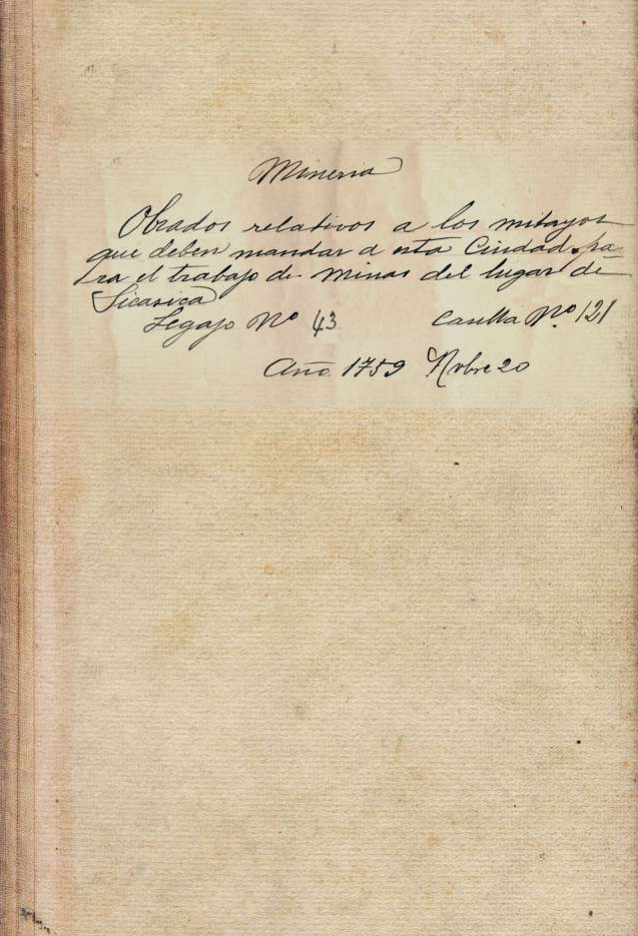 Mineria
Obrados relativos a los mitayos
que deben mandar a esta Ciudad pa
ra el trabajo de minas del lugar de
Sicasica
Legajo Nº 43 Casilla Nº 121
Año 1759 Nvbre 20